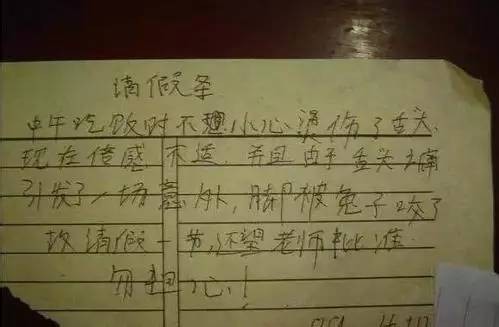 请假条
中午吃饭时不想小心烫伤了舌头.
现在倍感不适.并且由于舌头太痛
引发了一场意外,脚被兔子咬了
故请假一节,还望老师批准.
勿担心!